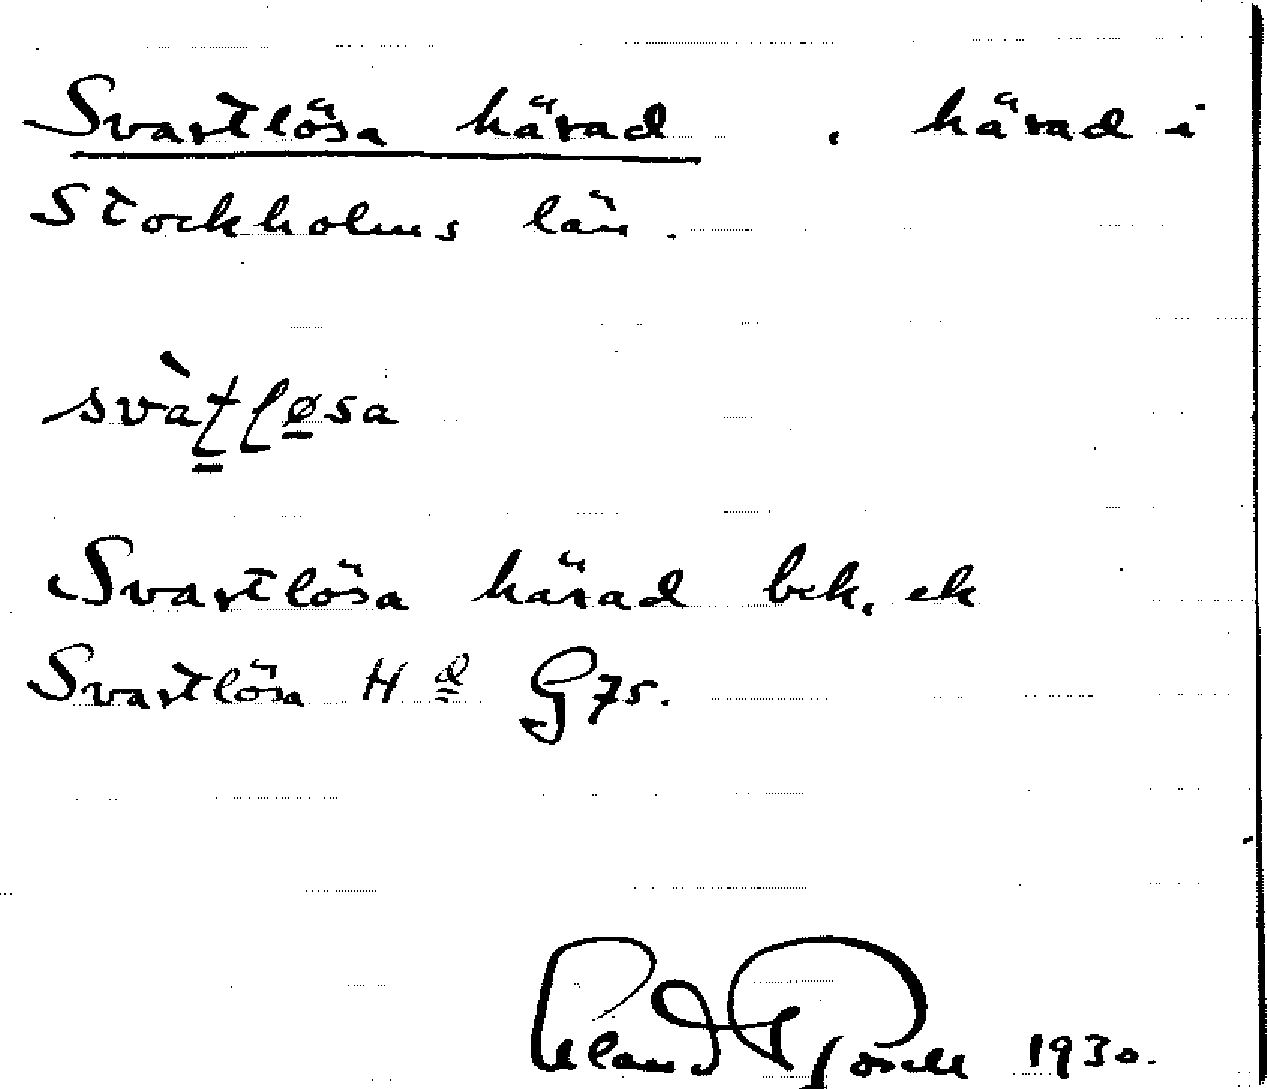 Svartlösa härad, härad i
Stockholms län.
svàt̠lø̠sa
Svartlösa härad bek. ek
Svartlösa Hd G 75.
1930.